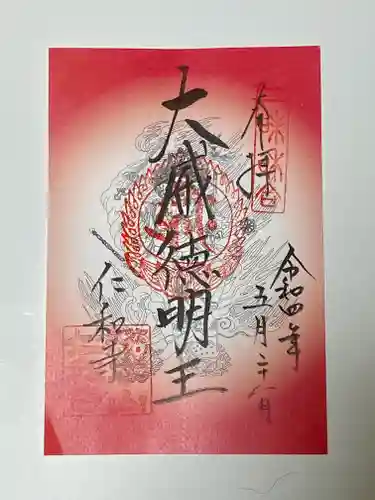 奉拝
令和四年
五月二十八日
大威徳明王
仁和寺